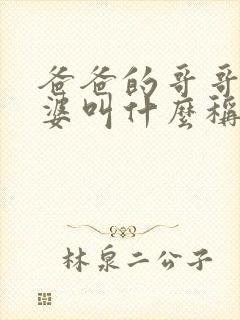 爸爸的哥哥
婆叫什麼稱
林泉二公子